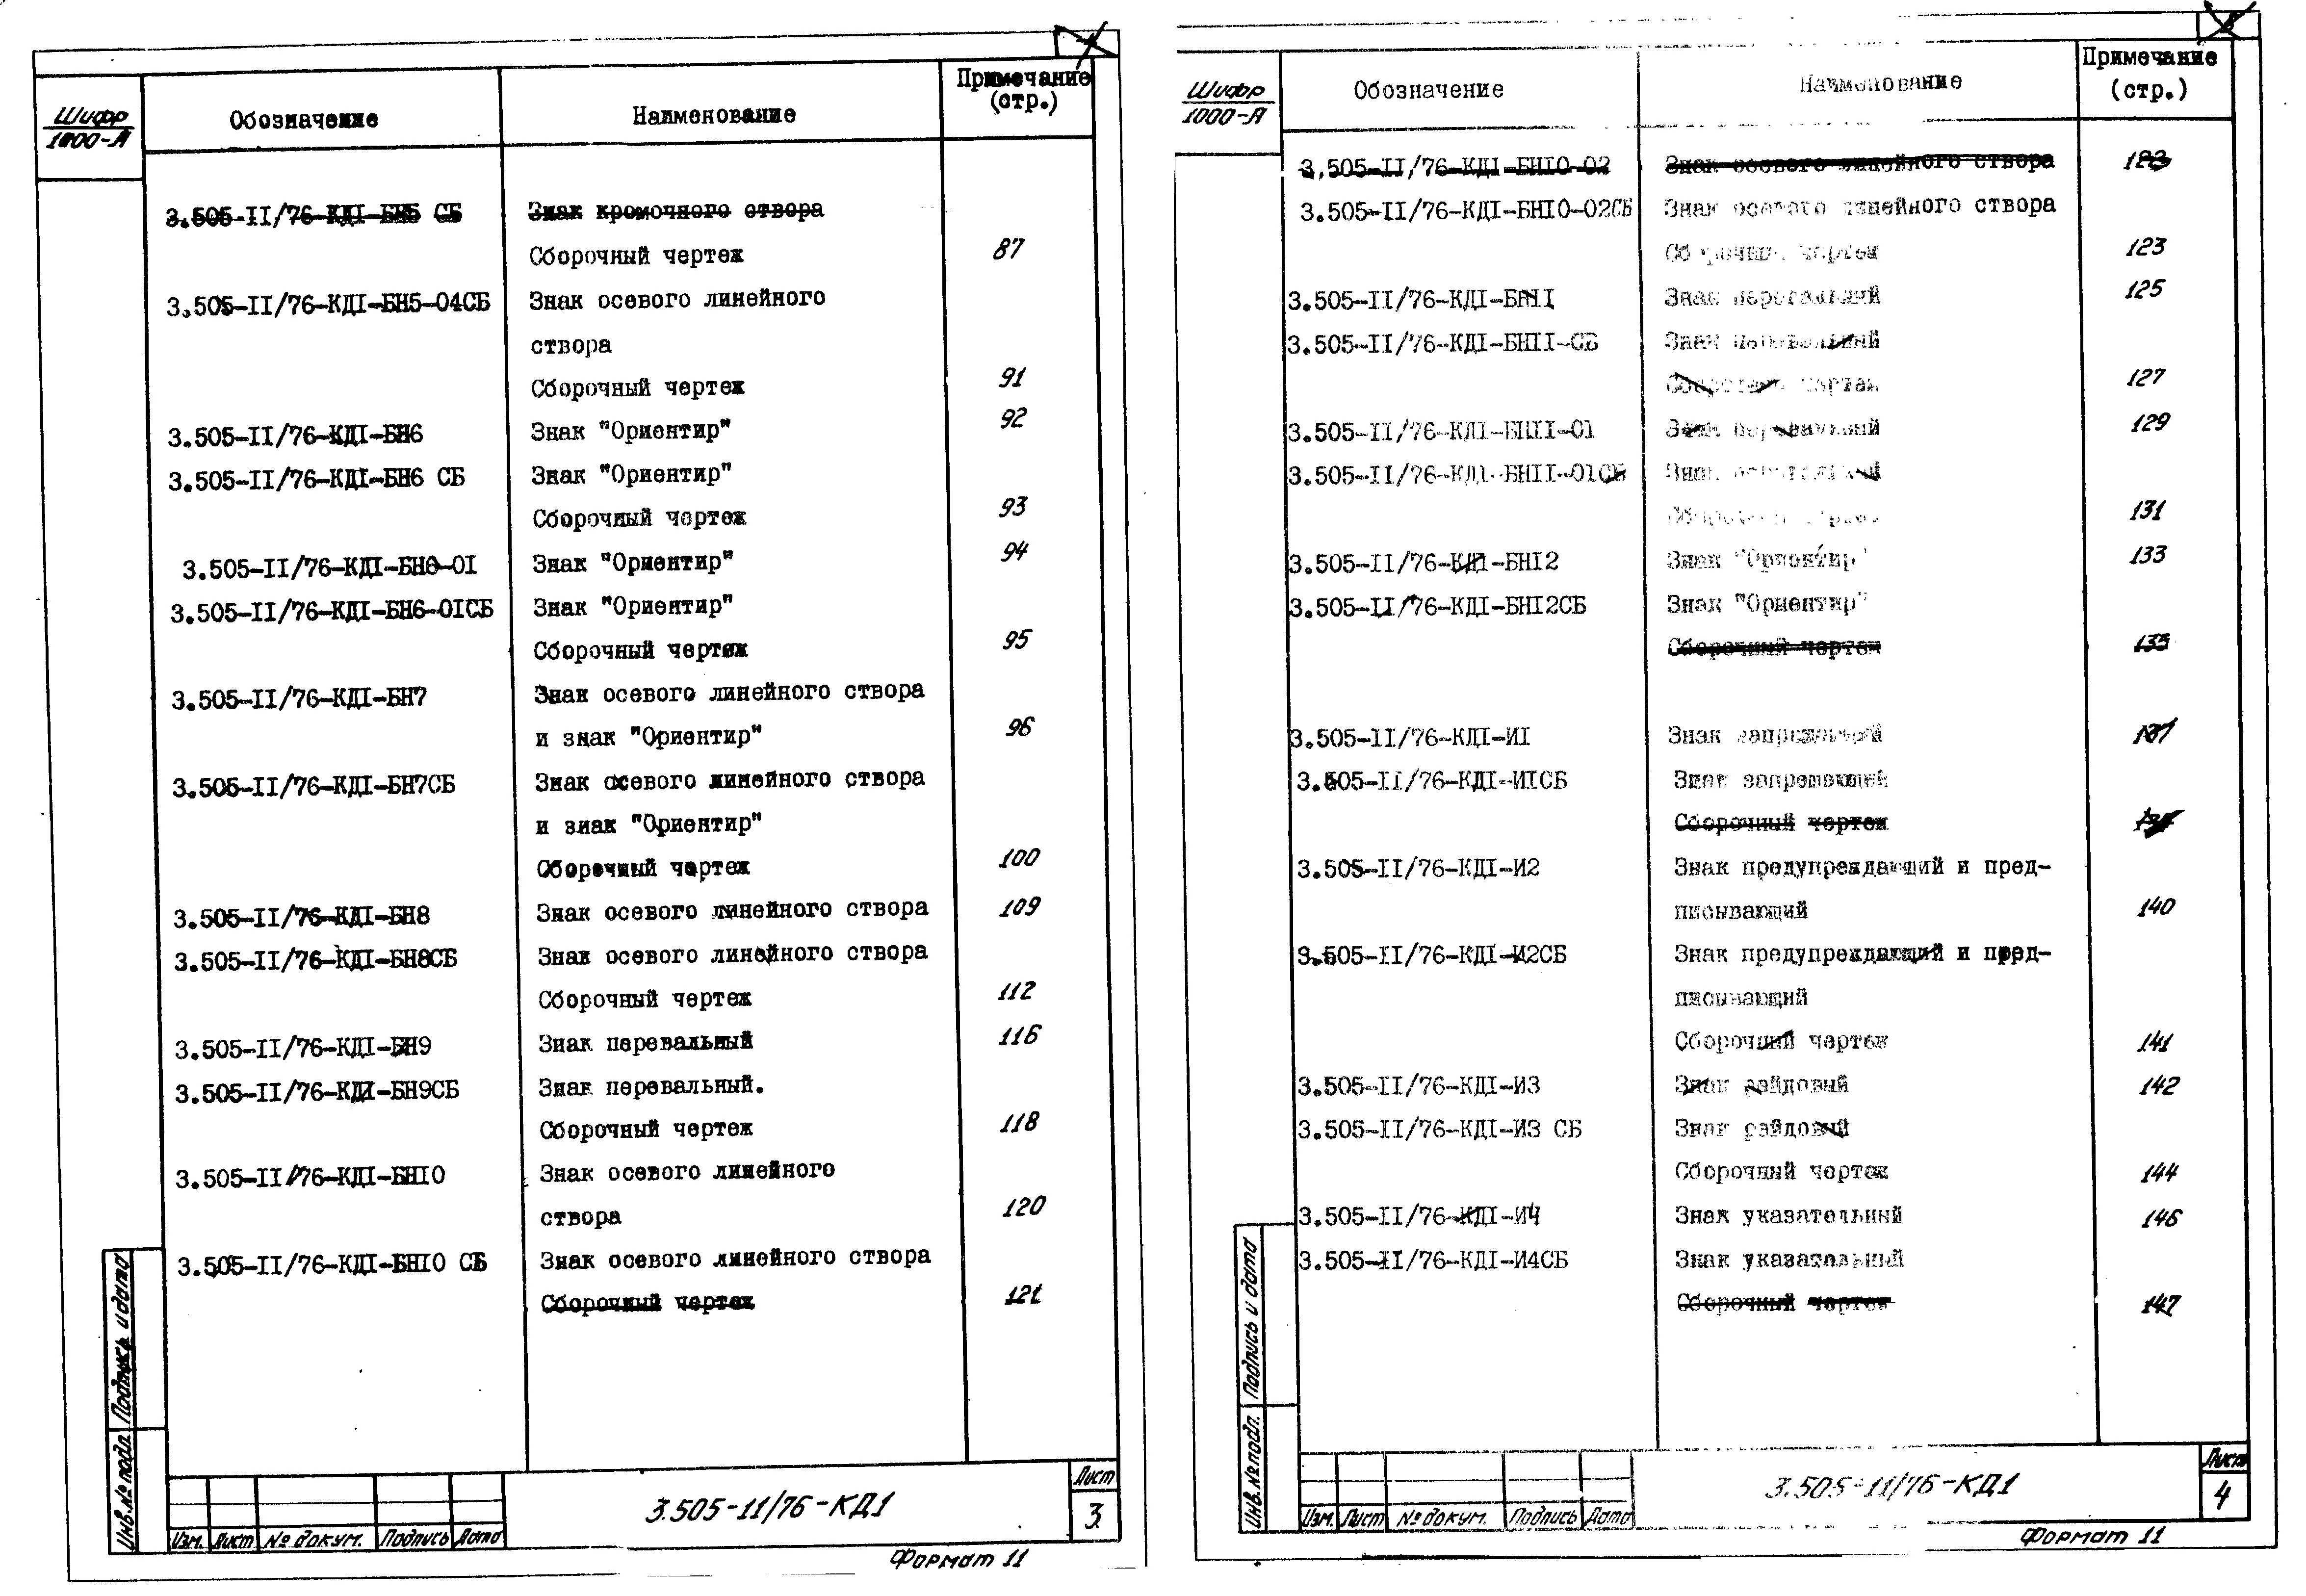 Шифр
1000-А
Обозначение
Наименование
Примечание
(стр.)
3.505-II/76-КДI-БН5 СБ Знак кромочного створа
Сборочный чертеж 87
3.505-II/76-КДI-БН5-04СБ Знак осевого линейного
створа
Сборочный чертеж 91
3.505-II/76-КДI-БН6 Знак "Ориентир" 92
3.505-II/76-КДI-БН6 СБ Знак "Ориентир"
Сборочный чертеж 93
3.505-II/76-КДI-БН6-0I Знак "Ориентир" 94
3.505-II/76-КДI-БН6-0IСБ Знак "Ориентир"
Сборочный чертеж 95
3.505-II/76-КДI-БН7 Знак осевого линейного створа
и знак "Ориентир" 96
3.505-II/76-КДI-БН7СБ Знак осевого линейного створа
и знак "Ориентир"
Сборочный чертеж 100
3.505-II/76-КДI-БН8 Знак осевого линейного створа 109
3.505-II/76-КДI-БН8СБ Знак осевого линейного створа
Сборочный чертеж 112
3.505-II/76-КДI-БН9 Знак перевальный 116
3.505-II/76-КДI-БН9СБ Знак перевальный.
Сборочный чертеж 118
3.505-II/76-КДI-БНI0 Знак осевого линейного
створа 120
3.505-II/76-КДI-БНI0 СБ Знак осевого линейного створа
Сборочный чертеж 121
Инв.№ подл. Подпись и дата
Изм. Лист № докум. Подпись Дата
3.505-11/76-КД1
Лист
3
Формат 11
Шифр
1000-А
Обозначение
Наименование
Примечание
(стр.)
3.505-II/76-КДI-БНI0-02 Знак осевого линейного створа 123
3.505-II/76-КДI-БНI0-02СБ Знак осевого линейного створа
Сборочный чертеж 123
3.505-II/76-КДI-БНII Знак перевальный 125
3.505-II/76-КДI-БНII-СБ Знак перевальный
Сборочный чертеж 127
3.505-II/76-КДI-БНII-0I Знак перевальный 129
3.505-II/76-КДI-БНII-0IСБ Знак перевальный
Сборочный чертеж 131
3.505-II/76-КДI-БНI2 Знак "Ориентир" 133
3.505-II/76-КДI-БНI2СБ Знак "Ориентир"
Сборочный чертеж 135
3.505-II/76-КДI-ИI Знак запрещающий 137
3.505-II/76-КДI-ИIСБ Знак запрещающий
Сборочный чертеж
3.505-II/76-КДI-И2 Знак предупреждающий и пред-
писывающий 140
3.505-II/76-КДI-И2СБ Знак предупреждающий и пред-
писывающий
Сборочный чертеж 141
3.505-II/76-КДI-И3 Знак рейдовый 142
3.505-II/76-КДI-И3 СБ Знак рейдовый
Сборочный чертеж 144
3.505-II/76-КДI-И4 Знак указательный 146
3.505-II/76-КДI-И4СБ Знак указательный
Сборочный чертеж 147
Инв.№ подл. Подпись и дата
Изм. Лист № докум. Подпись Дата
3.505-11/76-КД1
Лист
4
Формат 11